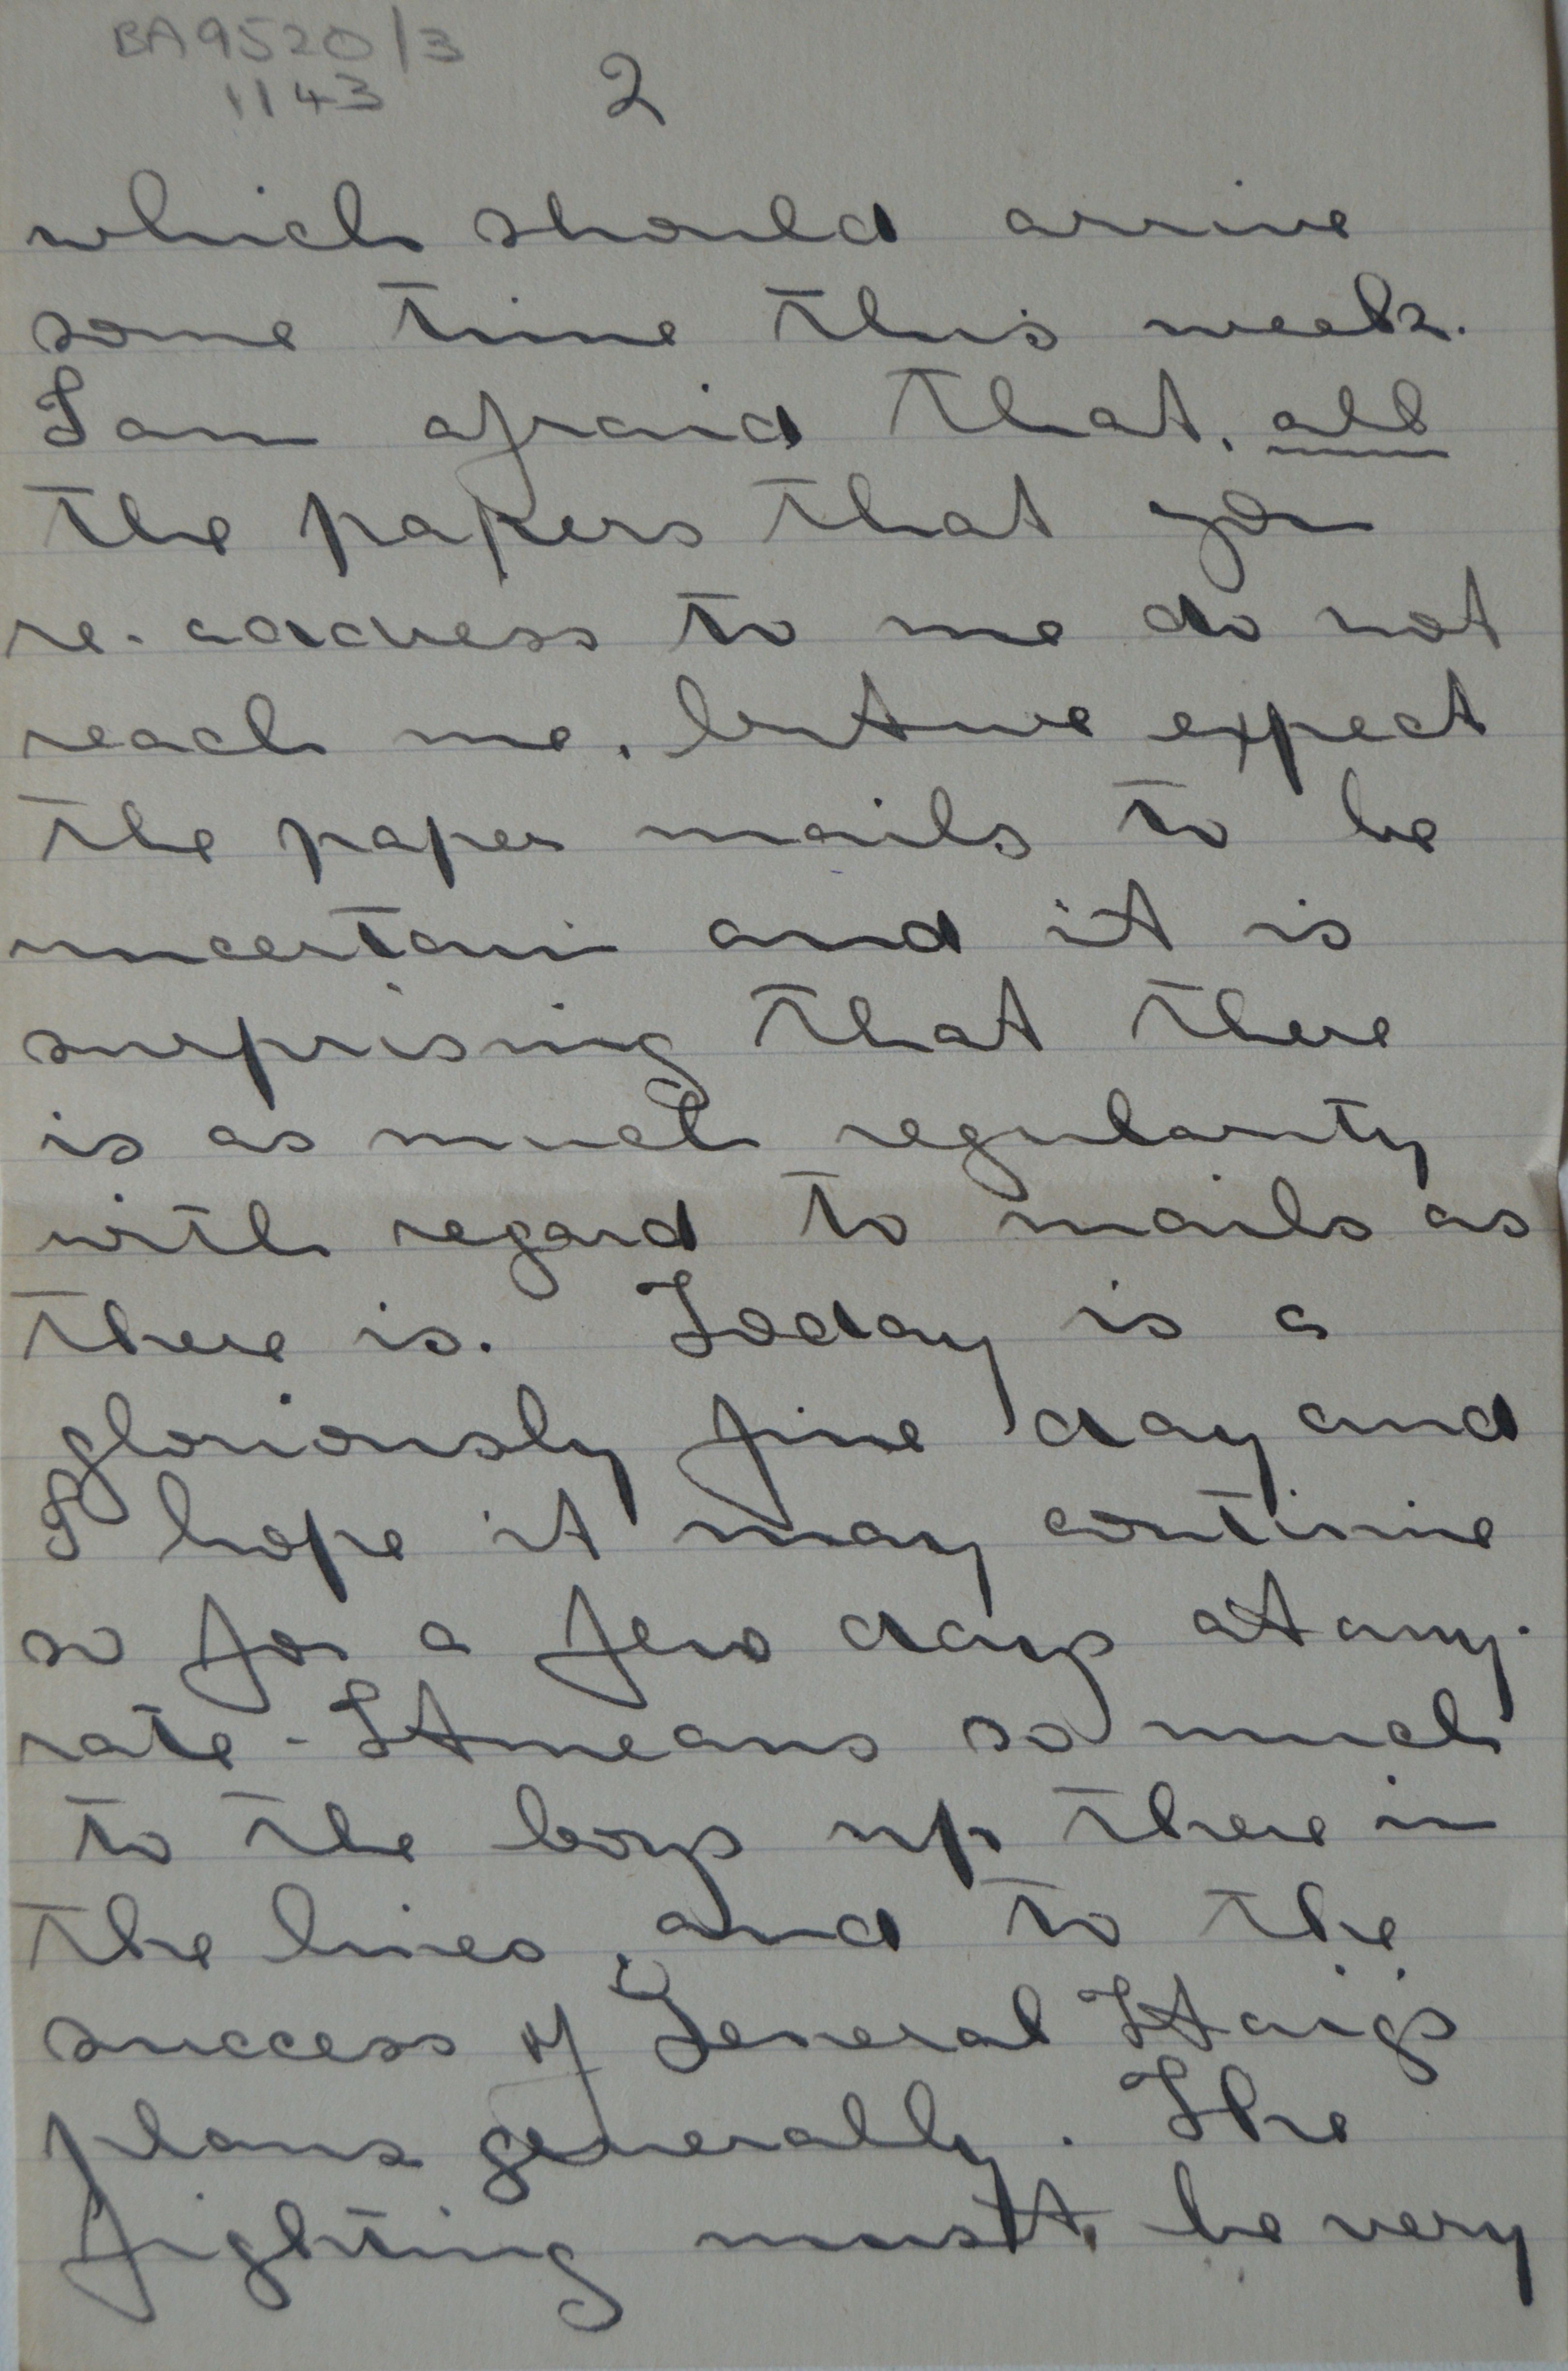 BA9520/3
1143
2
which should arrive
some time this week.
I am afraid that, all
the papers that you
re-address to me do not
reach me, but we expect
the paper mails to be
uncertain and it is
surprising that there
is as much regularity
with regard to mails as
there is. Today is a
gloriously fine day and
I hope it may continue
so for a few days at any
rate - It means so much
to the boys up there in
the lines, and to the
success of General Haig's
plans generally. The
fighting must be very